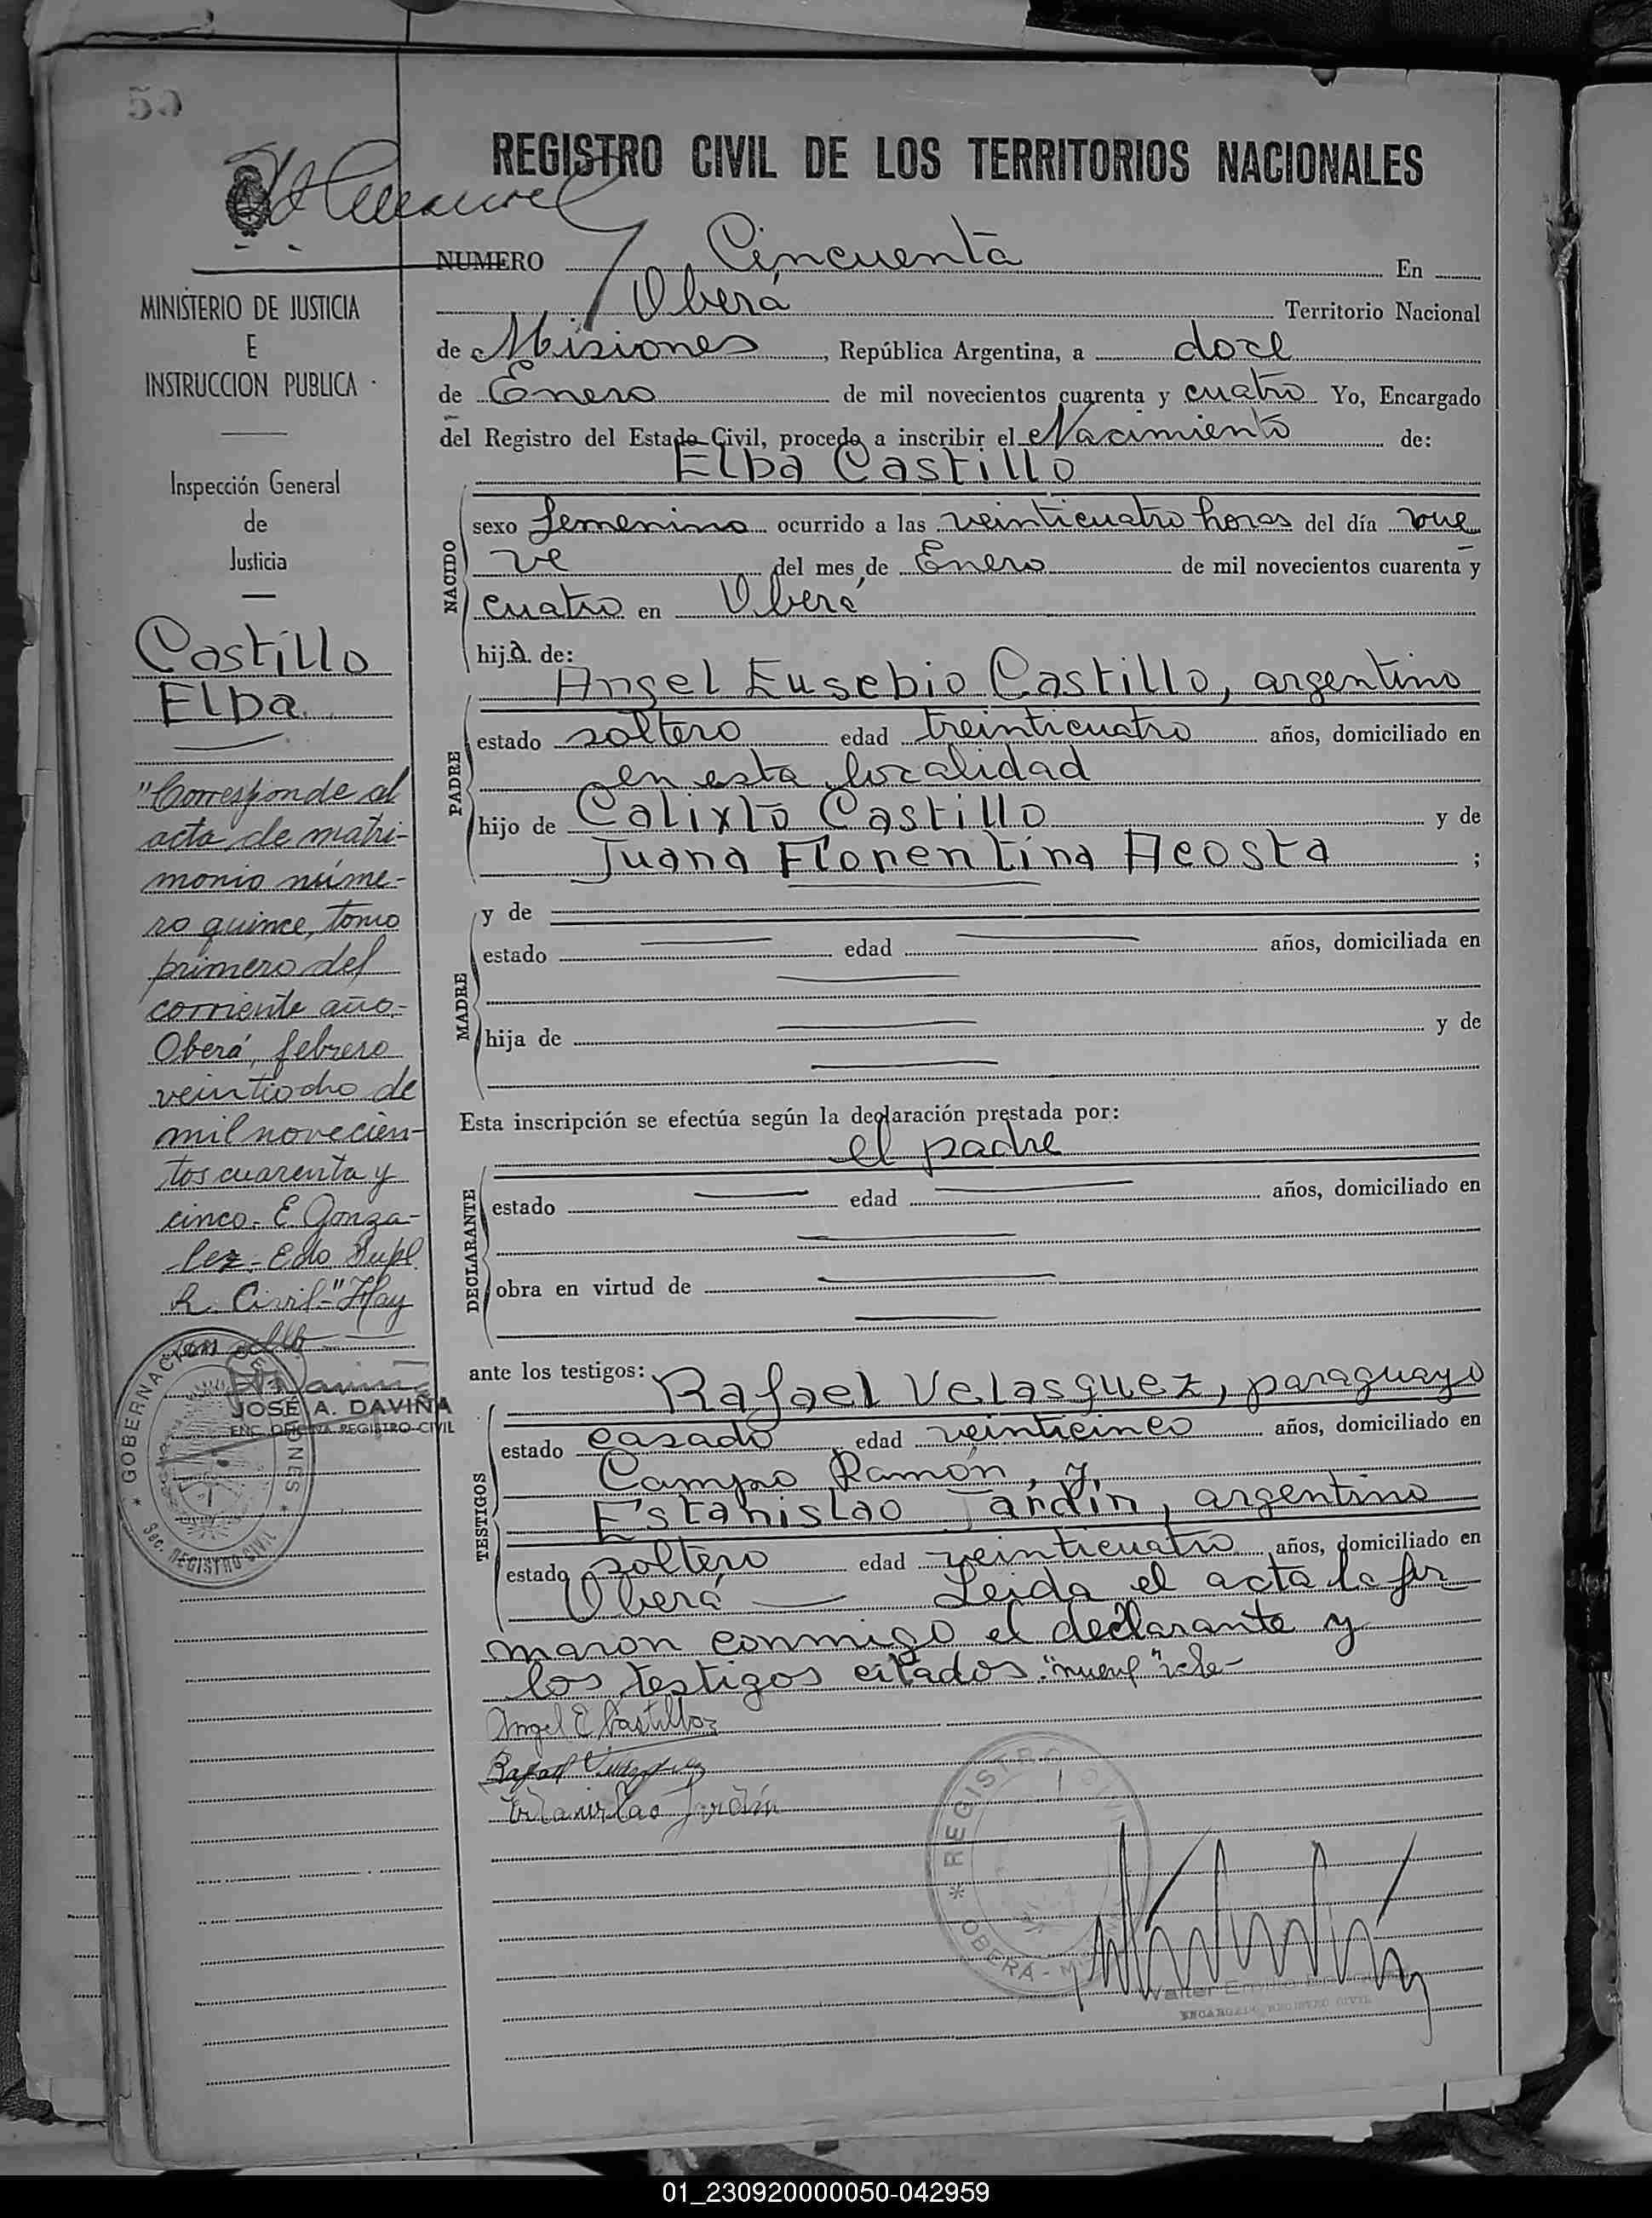 50
REGISTRO CIVIL DE LOS TERRITORIOS NACIONALES
NUMERO Cincuenta En
Oberá Territorio Nacional
de Misiones, República Argentina, a doce
de Enero de mil novecientos cuarenta y cuatro Yo, Encargado
del Registro del Estado Civil, procedo a inscribir el Nacimiento de:
Elba Castillo
NACIDO
sexo femenino ocurrido a las veinticuatro horas del día nue
ve del mes de Enero de mil novecientos cuarenta y
cuatro en Oberá
hija de:
PADRE
Angel Eusebio Castillo, argentino
estado soltero edad treinticuatro años, domiciliado en
en esta localidad
hijo de Calixto Castillo y de
Juana Florentina Acosta ;
MADRE
y de
estado edad años, domiciliada en
hija de y de
Esta inscripción se efectúa según la declaración prestada por:
el padre
DECLARANTE
estado edad años, domiciliado en
obra en virtud de
ante los testigos: Rafael Velasquez, paraguayo
TESTIGOS
estado casado edad veinticinco años, domiciliado en
Campo Ramón, y,
Estanislao Jardín, argentino
estado soltero edad veinticuatro años, domiciliado en
Oberá Leida el acta la fir
maron conmigo el declarante y
los testigos citados.
Angel E Castillo
Rafael Velasquez
Estanislao Jardín
REGISTRO CIVIL
OBERÁ -
Walter
ENCARGADO REGISTRO CIVIL
MINISTERIO DE JUSTICIA
E
INSTRUCCION PUBLICA
Inspección General
de
Justicia
Castillo
Elba
"Corresponde al
acta de matri-
monio núme-
ro quince, tomo
primero del
corriente año.-
Oberá, febrero
veintiocho de
mil novecien-
tos cuarenta y
cinco. E. Gonza-
lez - Edo Supl.
R. Civil-" Hay
un sello
JOSÉ A. DAVIÑA
ENC. OFICINA REGISTRO-CIVIL
* GOBERNACION
ONES *
Sec. REGISTRO CIVIL
01_230920000050-042959